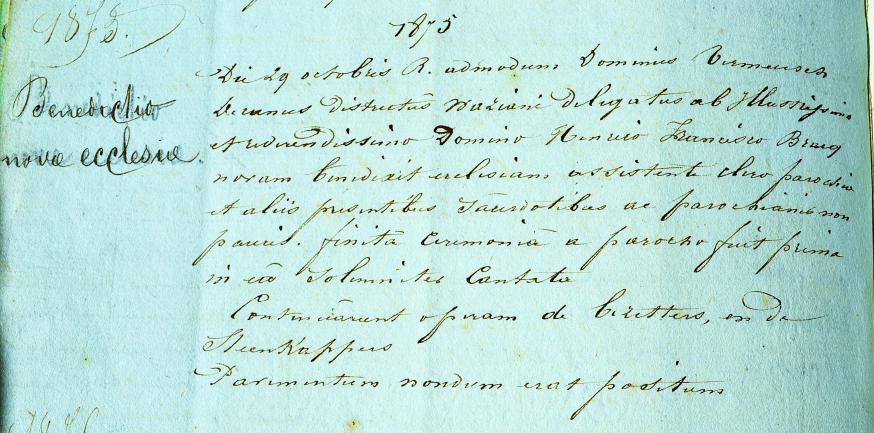 1875
1875.
Benedictio
novæ ecclesiæ.
Die 29 octobris R. admodum Dominus Vermeersch
Decanus districtus Waziani delegatus ab Illustrissimo
et reverendissimo Domino Henrico Francisco Bracq
novam benedixit ecclesiam assistente clero parochiæ
et aliis presentibus Sacerdotibus ac parochianis non
paucis. finitâ ceremoniâ a parocho fuit prima
in eâ Solemniter Cantata
Continuârunt operam de bezetters, en de
Steenkappers
Pavimentum nondum erat positum